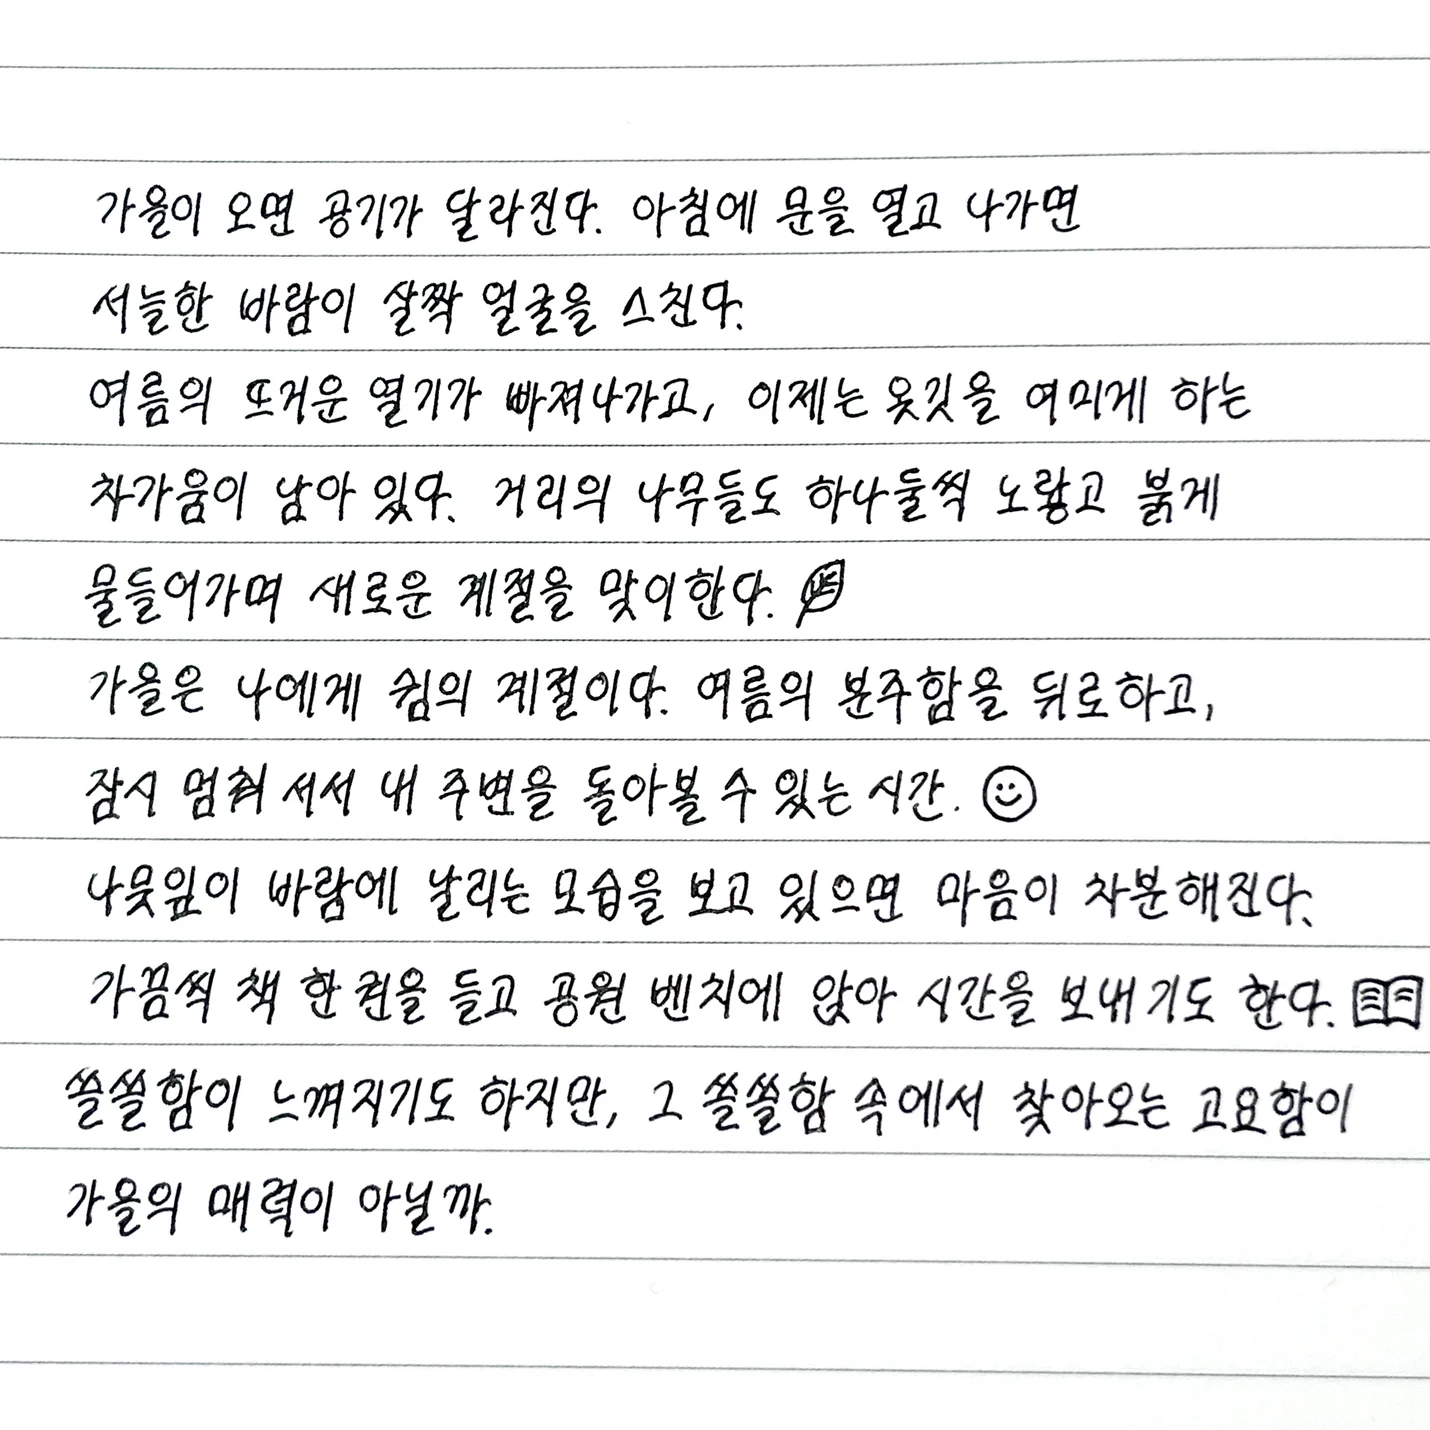 가을이 오면 공기가 달라진다. 아침에 문을 열고 나가면
서늘한 바람이 살짝 얼굴을 스친다.
여름의 뜨거운 열기가 빠져나가고, 이제는 옷깃을 여미게 하는
차가움이 남아 있다. 거리의 나무들도 하나둘씩 노랗고 붉게
물들어가며 새로운 계절을 맞이한다.
가을은 나에게 쉼의 계절이다. 여름의 분주함을 뒤로하고,
잠시 멈춰 서서 내 주변을 돌아볼 수 있는 시간.
나뭇잎이 바람에 날리는 모습을 보고 있으면 마음이 차분해진다.
가끔씩 책 한 권을 들고 공원 벤치에 앉아 시간을 보내기도 한다.
쓸쓸함이 느껴지기도 하지만, 그 쓸쓸함 속에서 찾아오는 고요함이
가을의 매력이 아닐까.